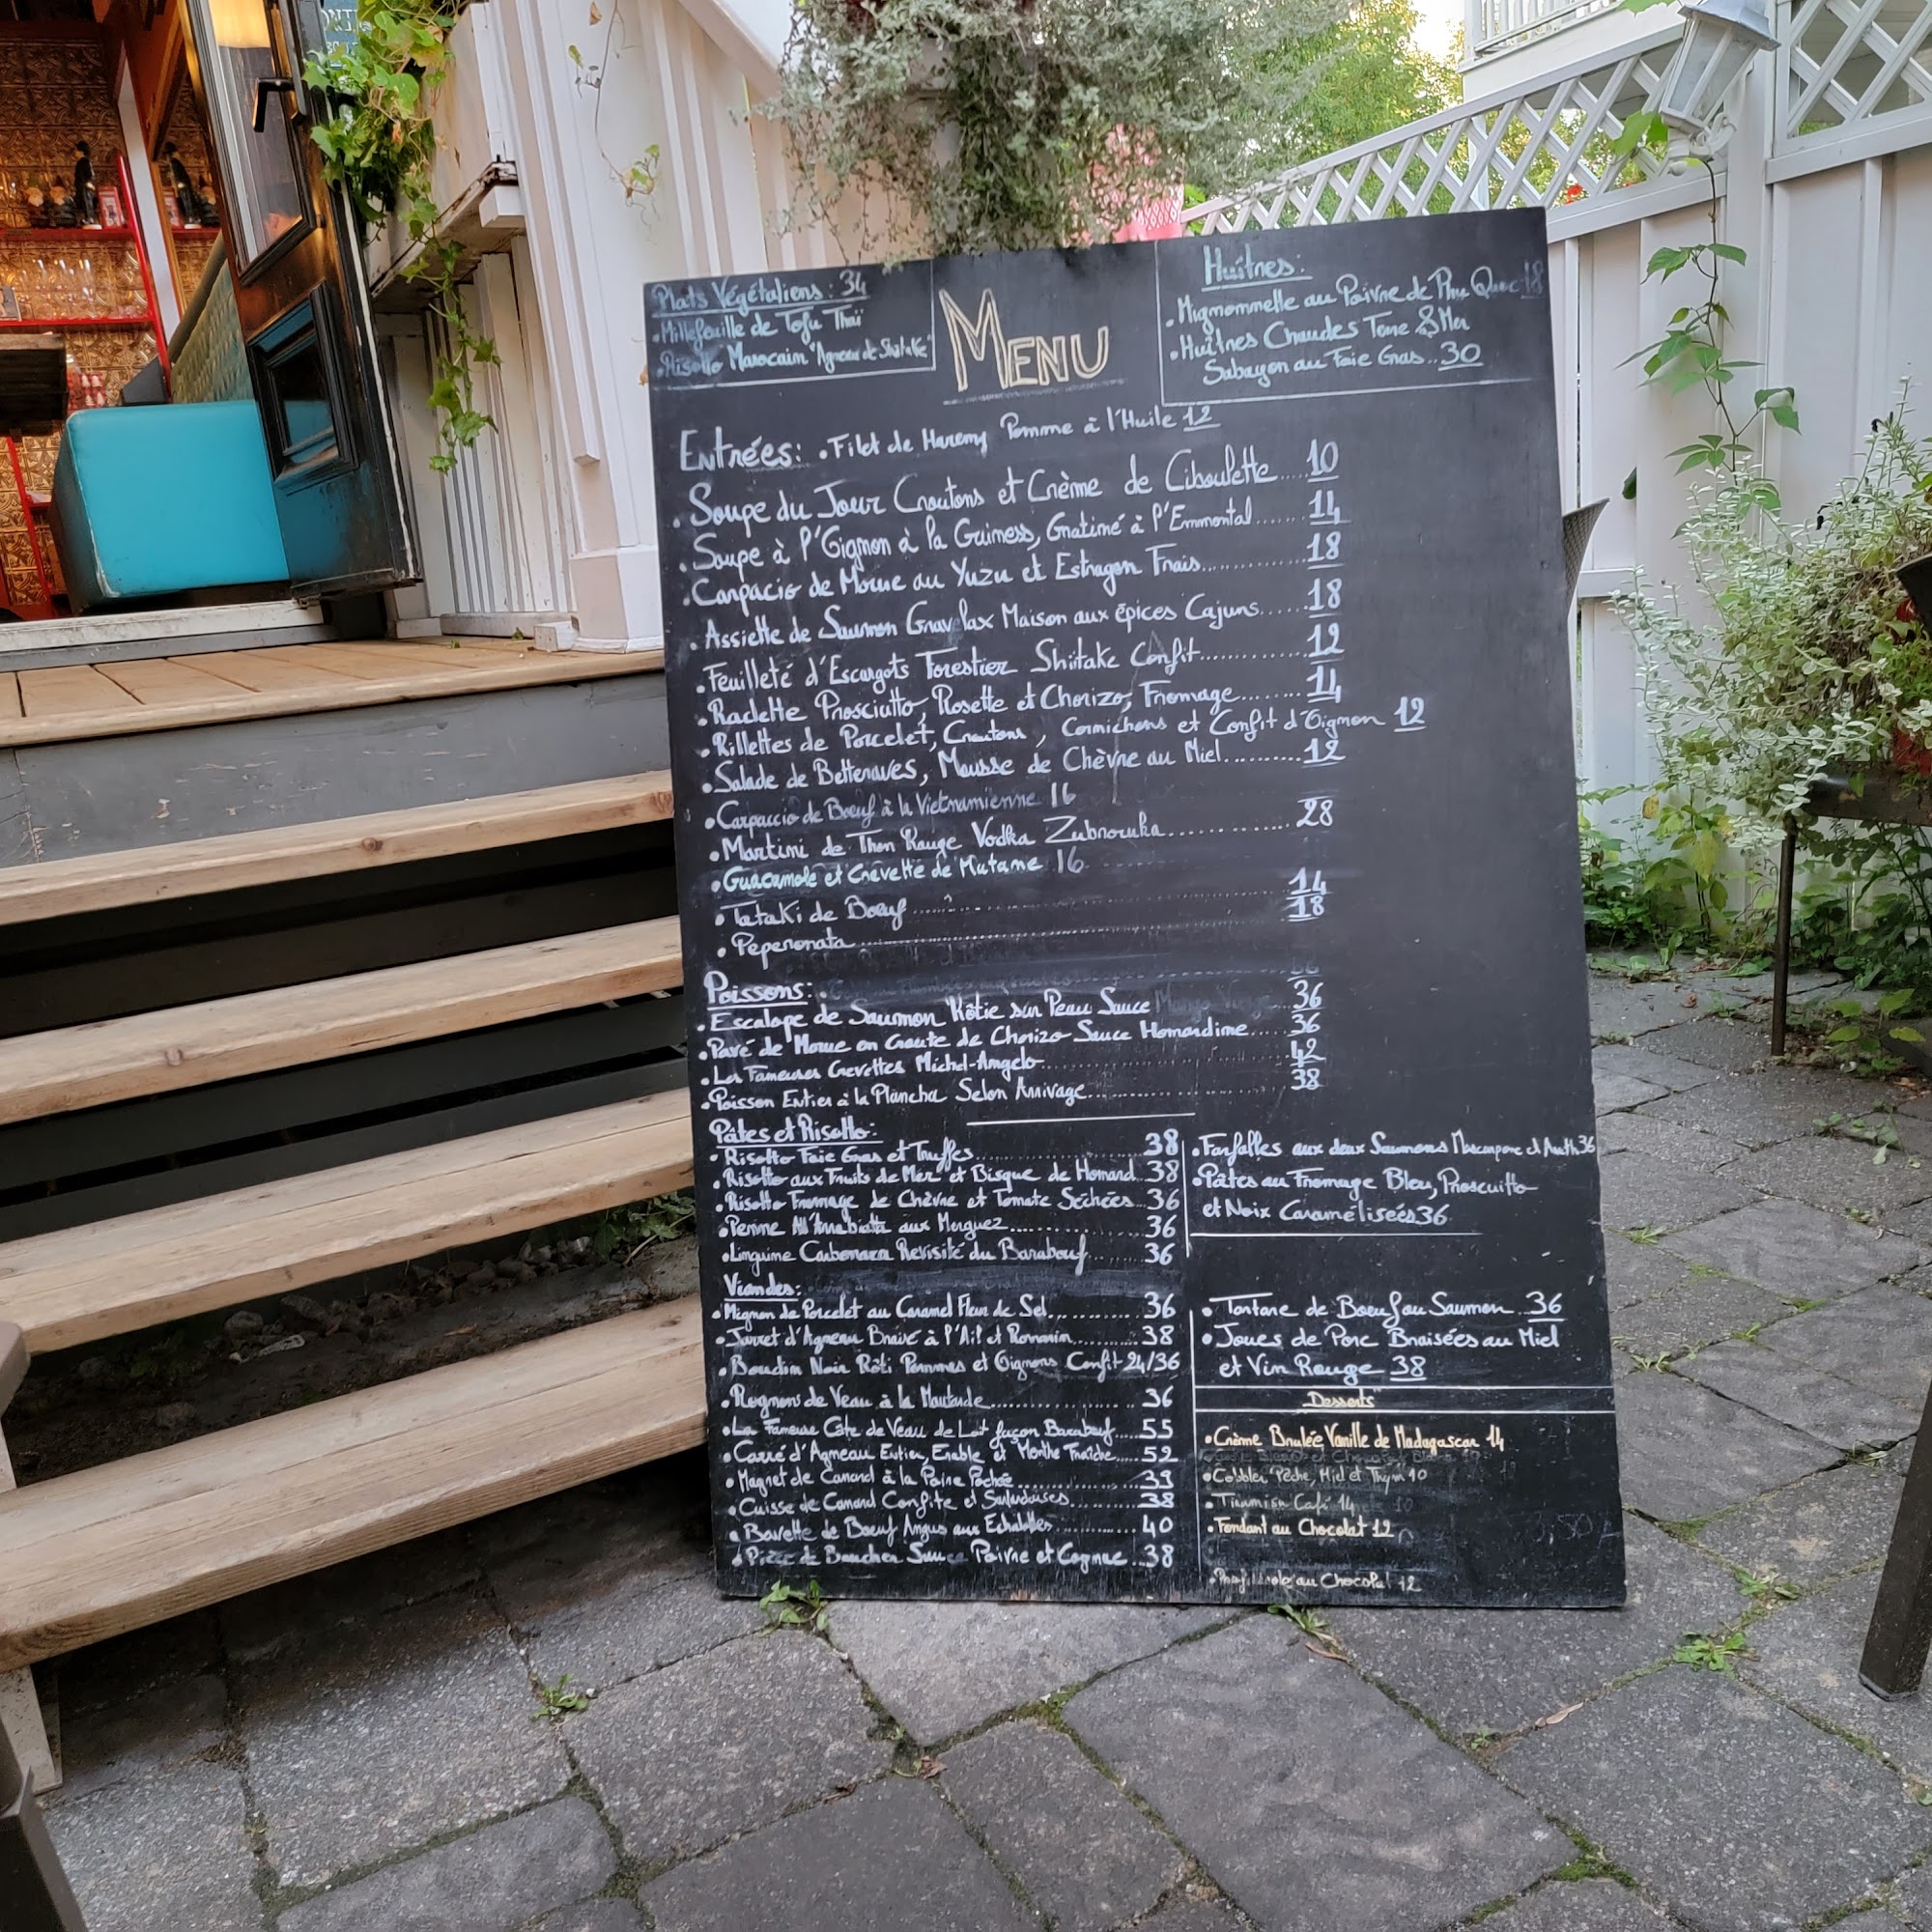 Plats Végétaliens: 34
• Millefeuille de Tofu Thaï
• Risotto Marocain "Agneau de Shiitake"
MENU
Huîtres:
• Mignonnelle au Poivre de Phu Quoc 18
• Huîtres Chaudes Terre & Mer
Sabayon au Foie Gras..30
Entrées: • Filet de Hareng Pomme à l'Huile 12
• Soupe du Jour Croutons et Crème de Ciboulette.....10
• Soupe à l'Oignon à la Guiness, Gratiné à l'Emmental......14
• Carpacio de Morue au Yuzu et Estragon Frais..........18
• Assiette de Saumon Gravelax Maison aux épices Cajuns......18
• Feuilleté d'Escargots Forestier Shiitake Confit............12
• Raclette Prosciutto, Rosette et Chorizo, Fromage........14
• Rillettes de Porcelet, Croutons, Cornichons et Confit d'Oignon 12
• Salade de Betteraves, Mousse de Chèvre au Miel..........12
• Carpaccio de Bœuf à la Vietnamienne 16
• Martini de Thon Rouge Vodka Zubrowka............28
• Guacamole et Crevette de Matane 16
• Tataki de Bœuf..............14
• Peperonata..............18
Poissons:
• Escalope de Saumon Rôtie sur Peau Sauce 36
• Pavé de Morue en Croute de Chorizo Sauce Homardine....36
• Les Fameuses Crevettes Michel-Angelo..............42
• Poisson Entier à la Plancha Selon Arrivage..............38
Pâtes et Risotto:
• Risotto Foie Gras et Truffes..............38
• Risotto aux Fruits de Mer et Bisque de Homard..38
• Risotto Fromage de Chèvre et Tomate Séchées...36
• Penne All'Arrabiatta aux Merguez..............36
• Linguine Carbonara Revisité du Barabœuf......36
• Farfalles aux deux Saumons Mascarpone et Aneth 36
• Pâtes au Fromage Bleu, Proscuitto
et Noix Caramélisées 36
Viandes:
• Mignon de Porcelet au Caramel Fleur de Sel..............36
• Jarret d'Agneau Braisé à l'Ail et Romarin..............38
• Boudin Noir Rôti Pommes et Oignons Confit 24/36
• Rognons de Veau à la Moutarde..............36
• La Fameuse Côte de Veau de Lait façon Barabœuf.....55
• Carré d'Agneau Entier, Erable et Menthe Fraîche.....52
• Magret de Canard à la Poire Pochée..............39
• Cuisse de Canard Confite et Sarladaises..............38
• Bavette de Bœuf Angus aux Echalottes..............40
• Pièce de Boucher Sauce Poivre et Cognac...38
• Tartare de Bœuf ou Saumon..36
• Joues de Porc Braisées au Miel
et Vin Rouge 38
Desserts
• Crème Brulée Vanille de Madagascar 14
• Cobbler Pêche, Miel et Thym 10
• Tiramisu Café 14
• Fondant au Chocolat 12
au Chocolat 12